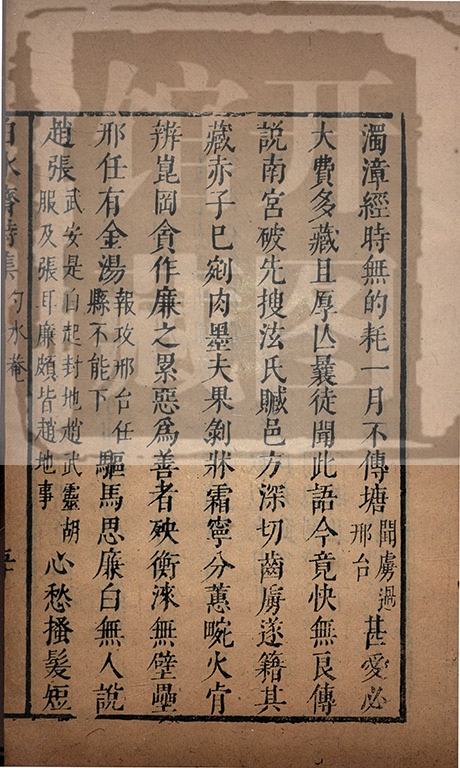 濁漳經時無的耗一月不傳塘聞虜過邢台甚愛必
大費多藏且厚亾曩徒聞此語今竟快無良傳
說南宮破先搜泫氏贓邑方深切齒虜遂籍其
藏赤子已剜肉墨夫果剝牀霜寧分蕙畹火肯
辨崑岡貪作廉之累惡為善者殃衡涞無壁壘
邢任有金湯報攻邢台任縣不能下驅馬思廉白無人說
趙張武安是白起封地趙武靈胡服及張耳廉頗皆趙地事心愁搔髮短
白水齋詩集 勺水菴 五